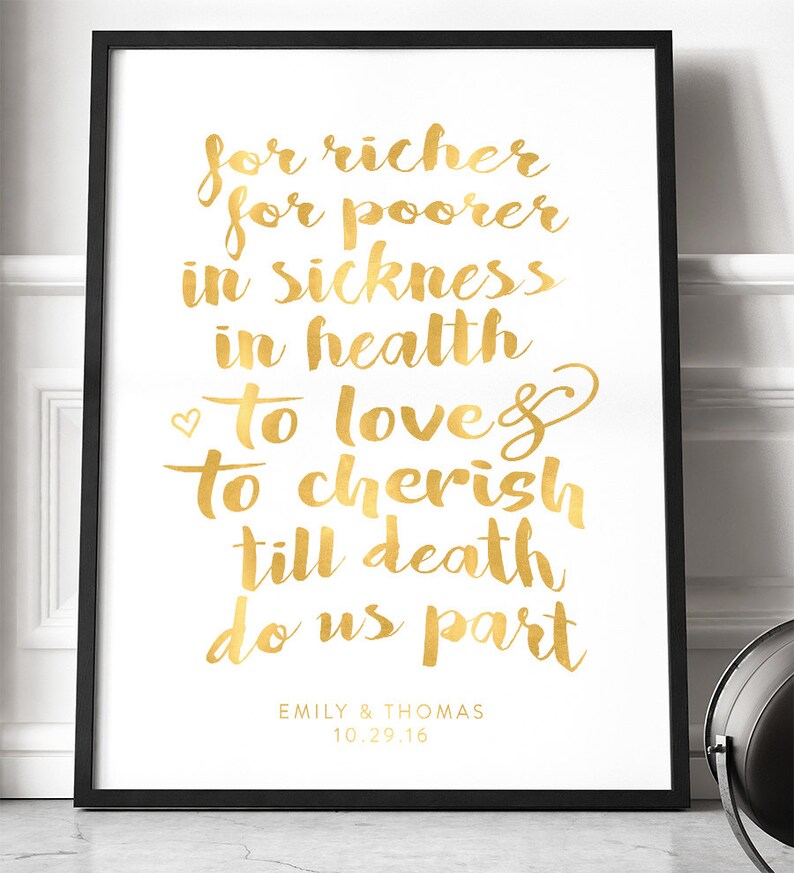 for richer
for poorer
in sickness
in health
to love &
to cherish
till death
do us part
EMILY & THOMAS
10.29.16